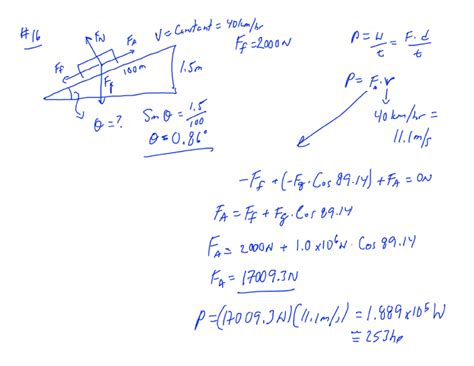 #16
F_N
F_A
F_f
100m
1.5m
F_g
θ = ?
V = Constant = 40km/hr
F_f = 2000N
Sin θ = 1.5/100
θ = 0.86°
P = W/t = F·d/t
P = F_A·v
40km/hr = 11.1m/s
-F_f + (-F_g·Cos 89.14) + F_A = 0N
F_A = F_f + F_g·Cos 89.14
F_A = 2000N + 1.0x10⁶N · Cos 89.14
F_A = 17009.3N
P = (17009.3N)(11.1m/s) = 1.889x10⁵W
≅ 253hp